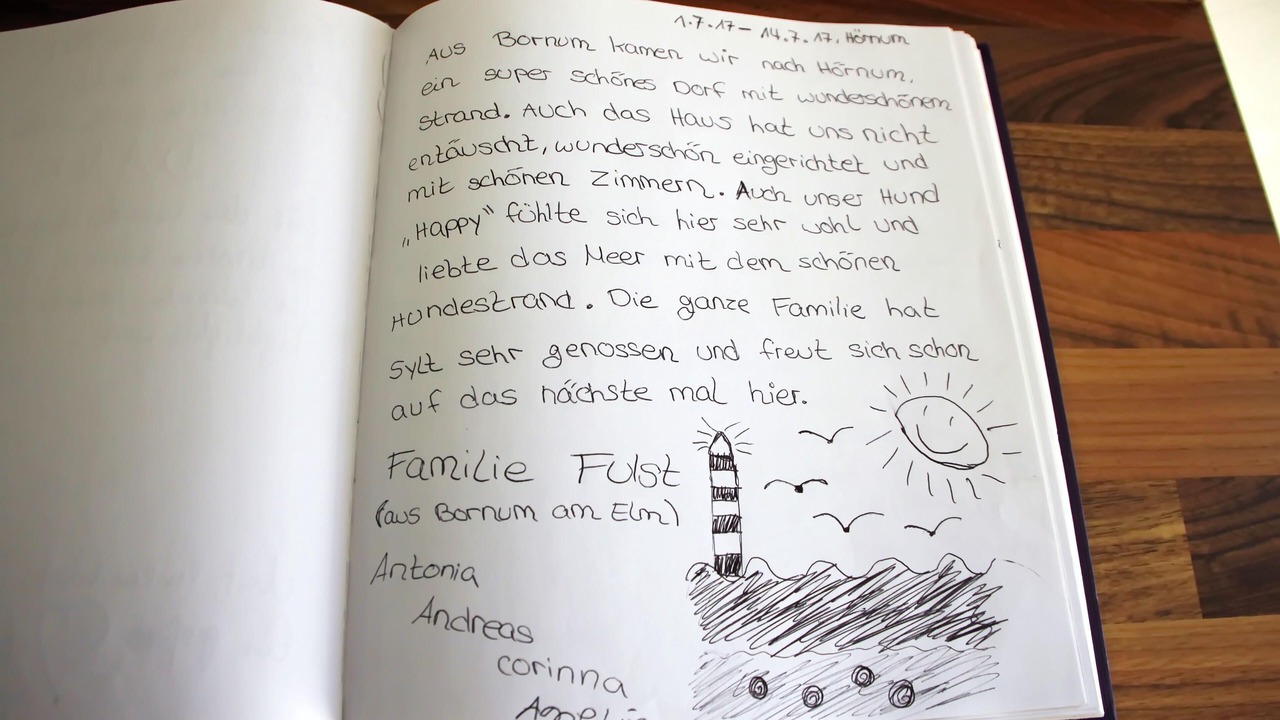 1.7.17 – 14.7.17, Hörnum
Aus Bornum kamen wir nach Hörnum,
ein super schönes Dorf mit wunderschönem
strand. Auch das Haus hat uns nicht
entäuscht, wunderschön eingerichtet und
mit schönen Zimmern. Auch unser Hund
„Happy“ fühlte sich hier sehr wohl und
liebte das Meer mit dem schönen
Hundestrand. Die ganze Familie hat
Sylt sehr genossen und freut sich schon
auf das nächste mal hier.
Familie Fulst
(aus Bornum am Elm)
Antonia
Andreas
corinna